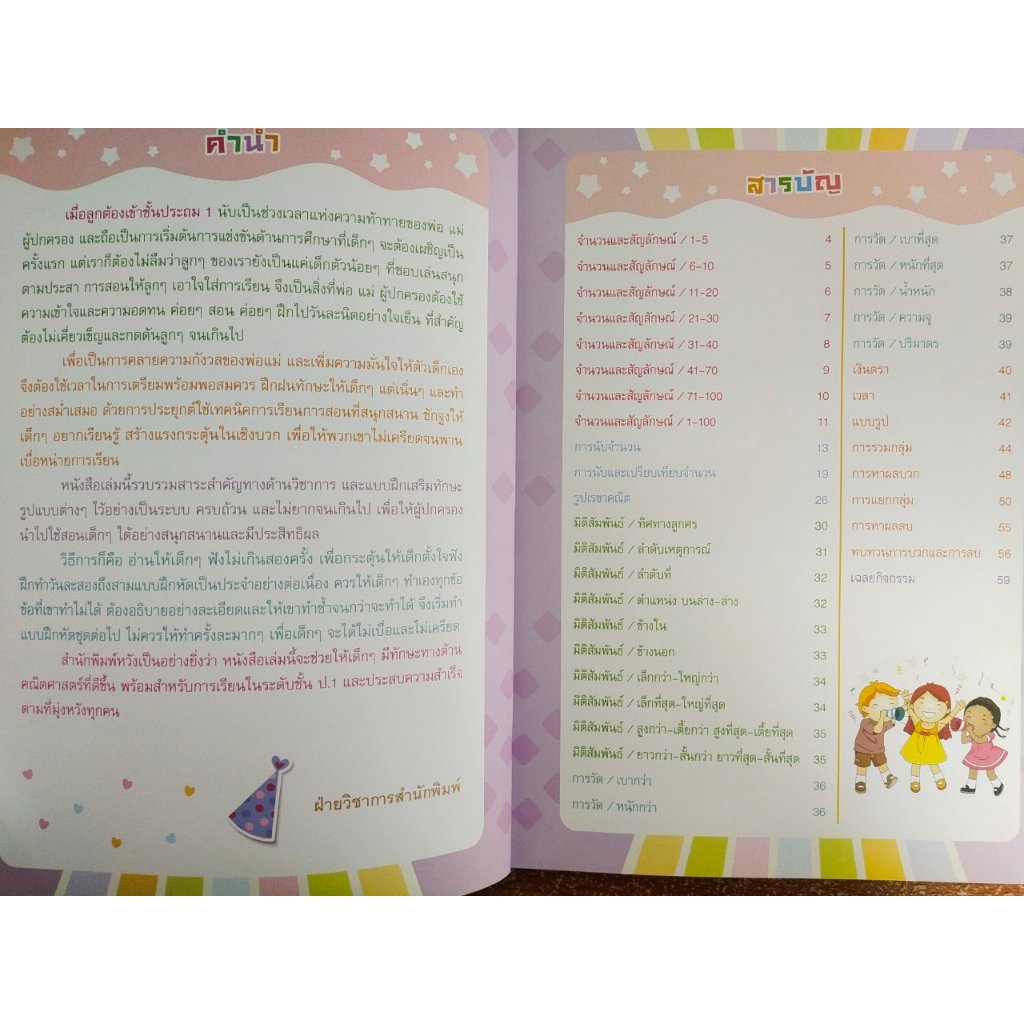 คำนำ
เมื่อลูกต้องเข้าชั้นประถม 1 นับเป็นช่วงเวลาแห่งความท้าทายของพ่อ แม่
ผู้ปกครอง และถือเป็นการเริ่มต้นการแข่งขันด้านการศึกษาที่เด็กๆ จะต้องเผชิญเป็น
ครั้งแรก แต่เราก็ต้องไม่ลืมว่าลูกๆ ของเรายังเป็นแค่เด็กตัวน้อยๆ ที่ชอบเล่นสนุก
ตามประสา การสอนให้ลูกๆ เอาใจใส่การเรียน จึงเป็นสิ่งที่พ่อ แม่ ผู้ปกครองต้องใช้
ความเข้าใจและความอดทน ค่อยๆ สอน ค่อยๆ ฝึกไปวันละนิดอย่างใจเย็น ที่สำคัญ
ต้องไม่เคี่ยวเข็ญและกดดันลูกๆ จนเกินไป
เพื่อเป็นการคลายความกังวลของพ่อแม่ และเพิ่มความมั่นใจให้ตัวเด็กเอง
จึงต้องใช้เวลาในการเตรียมพร้อมพอสมควร ฝึกฝนทักษะให้เด็กๆ แต่เนิ่นๆ และทำ
อย่างสม่ำเสมอ ด้วยการประยุกต์ใช้เทคนิคการเรียนการสอนที่สนุกสนาน ชักจูงให้
เด็กๆ อยากเรียนรู้ สร้างแรงกระตุ้นในเชิงบวก เพื่อให้พวกเขาไม่เครียดจนพาน
เบื่อหน่ายการเรียน
หนังสือเล่มนี้รวบรวมสาระสำคัญทางด้านวิชาการ และแบบฝึกเสริมทักษะ
รูปแบบต่างๆ ไว้อย่างเป็นระบบ ครบถ้วน และไม่ยากจนเกินไป เพื่อให้ผู้ปกครอง
นำไปใช้สอนเด็กๆ ได้อย่างสนุกสนานและมีประสิทธิผล
วิธีการก็คือ อ่านให้เด็กๆ ฟังไม่เกินสองครั้ง เพื่อกระตุ้นให้เด็กตั้งใจฟัง
ฝึกทำวันละสองถึงสามแบบฝึกหัดเป็นประจำอย่างต่อเนื่อง ควรให้เด็กๆ ทำเองทุกข้อ
ข้อที่เขาทำไม่ได้ ต้องอธิบายอย่างละเอียดและให้เขาทำซ้ำจนกว่าจะทำได้ จึงเริ่มทำ
แบบฝึกหัดชุดต่อไป ไม่ควรให้ทำครั้งละมากๆ เพื่อเด็กๆ จะได้ไม่เบื่อและไม่เครียด
สำนักพิมพ์หวังเป็นอย่างยิ่งว่า หนังสือเล่มนี้จะช่วยให้เด็กๆ มีทักษะทางด้าน
คณิตศาสตร์ที่ดีขึ้น พร้อมสำหรับการเรียนในระดับชั้น ป.1 และประสบความสำเร็จ
ตามที่มุ่งหวังทุกคน
ฝ่ายวิชาการสำนักพิมพ์
สารบัญ
จำนวนและสัญลักษณ์ / 1-5 4
จำนวนและสัญลักษณ์ / 6-10 5
จำนวนและสัญลักษณ์ / 11-20 6
จำนวนและสัญลักษณ์ / 21-30 7
จำนวนและสัญลักษณ์ / 31-40 8
จำนวนและสัญลักษณ์ / 41-70 9
จำนวนและสัญลักษณ์ / 71-100 10
จำนวนและสัญลักษณ์ / 1-100 11
การนับจำนวน 13
การนับและเปรียบเทียบจำนวน 19
รูปเรขาคณิต 26
มิติสัมพันธ์ / ทิศทางลูกศร 30
มิติสัมพันธ์ / ลำดับเหตุการณ์ 31
มิติสัมพันธ์ / ลำดับที่ 32
มิติสัมพันธ์ / ตำแหน่ง บนล่าง-ล่าง 32
มิติสัมพันธ์ / ข้างใน 33
มิติสัมพันธ์ / ข้างนอก 33
มิติสัมพันธ์ / เล็กกว่า-ใหญ่กว่า 34
มิติสัมพันธ์ / เล็กที่สุด-ใหญ่ที่สุด 34
มิติสัมพันธ์ / สูงกว่า-เตี้ยกว่า สูงที่สุด-เตี้ยที่สุด 35
มิติสัมพันธ์ / ยาวกว่า-สั้นกว่า ยาวที่สุด-สั้นที่สุด 35
การวัด / เบากว่า 36
การวัด / หนักกว่า 36
การวัด / เบาที่สุด 37
การวัด / หนักที่สุด 37
การวัด / น้ำหนัก 38
การวัด / ความจุ 39
การวัด / ปริมาตร 39
เงินตรา 40
เวลา 41
แบบรูป 42
การรวมกลุ่ม 44
การหาผลบวก 48
การแยกกลุ่ม 50
การหาผลลบ 55
ทบทวนการบวกและการลบ 56
เฉลยกิจกรรม 59